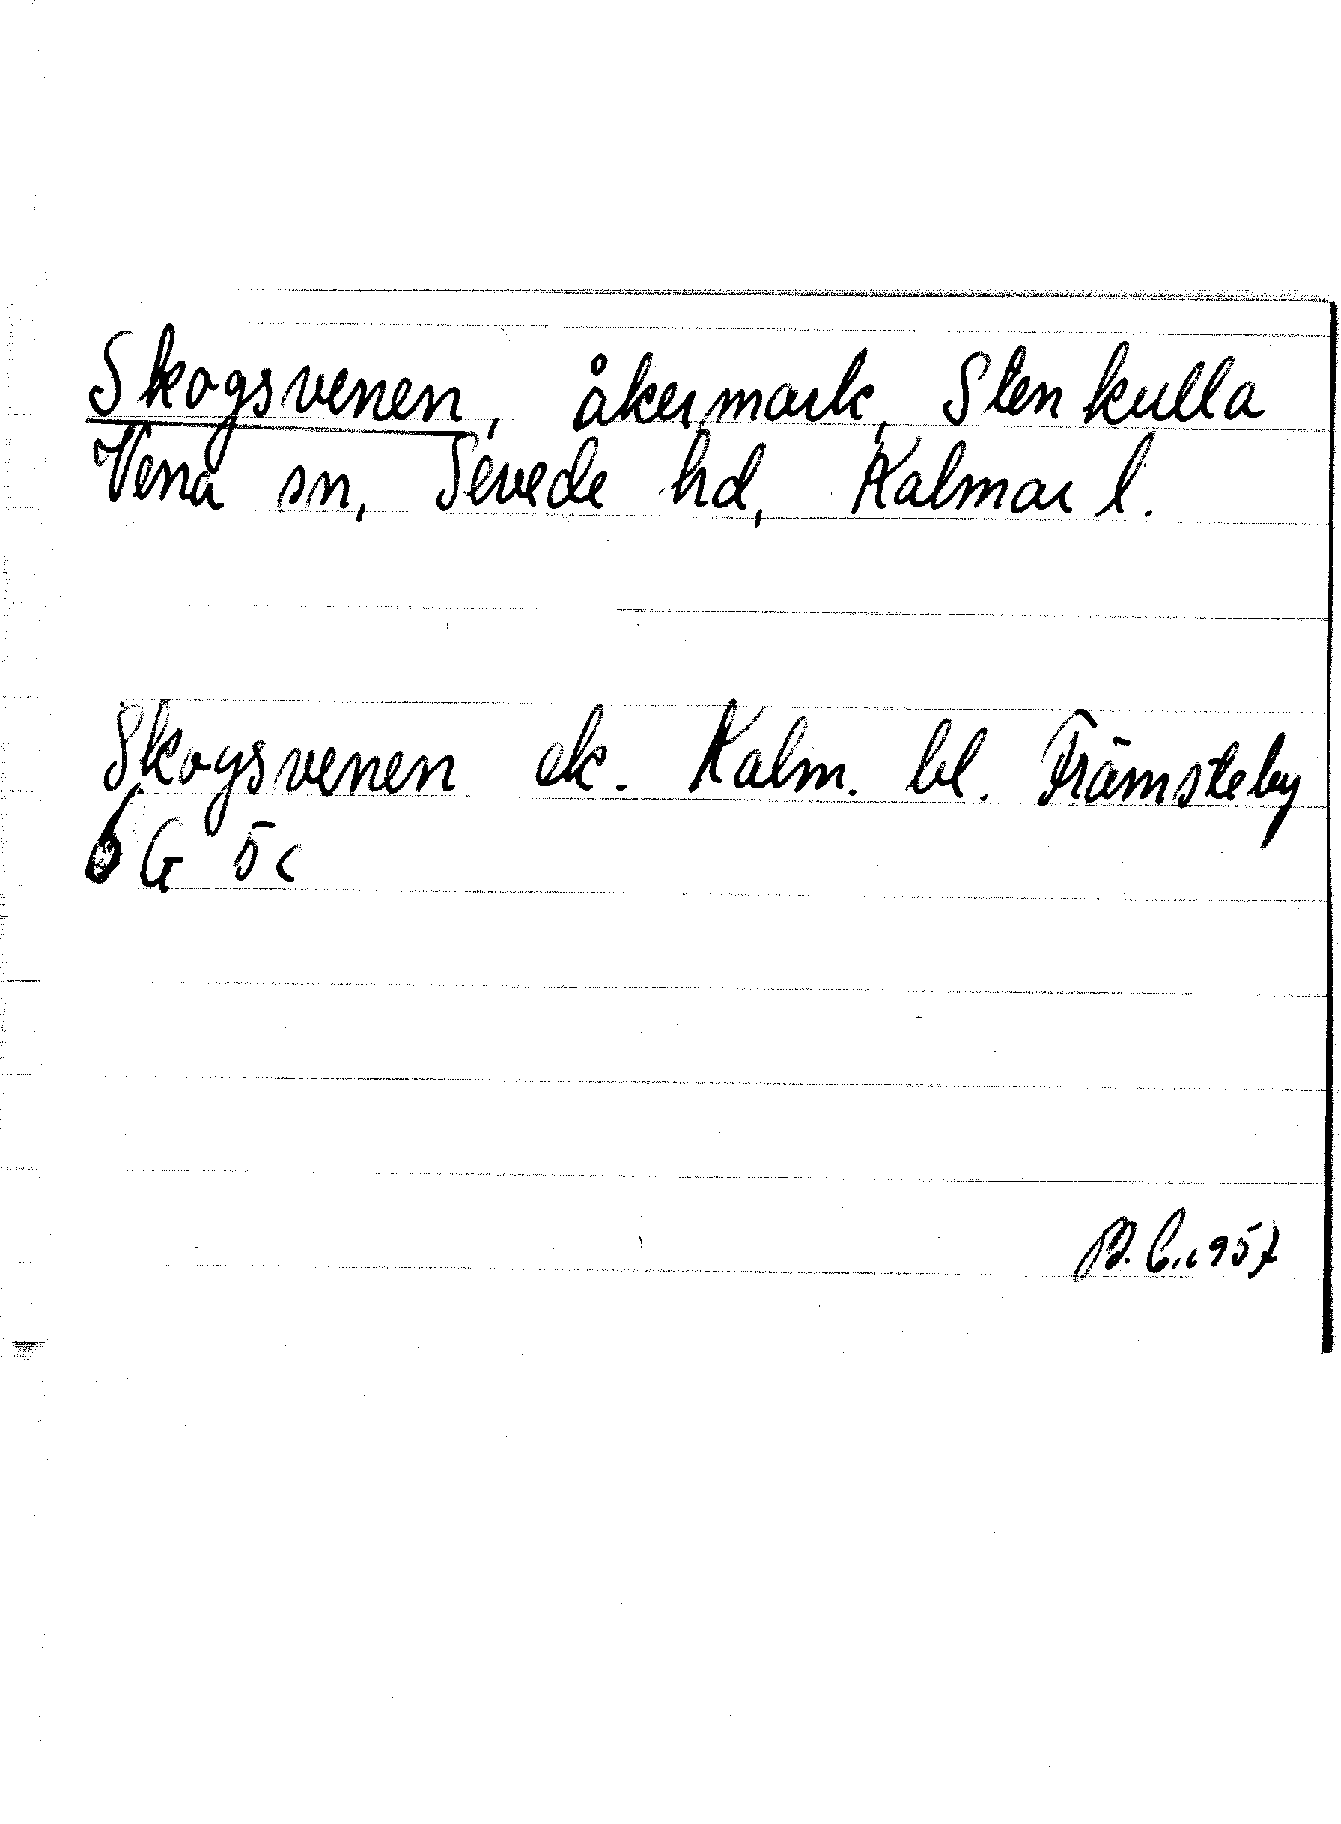 Skogsvenen, åkermark, Stenkulla
Vena sn, Sevede hd, Kalmar l.
Skogsvenen ek. Kalm. bl. Främsteby
6G 5c
1957